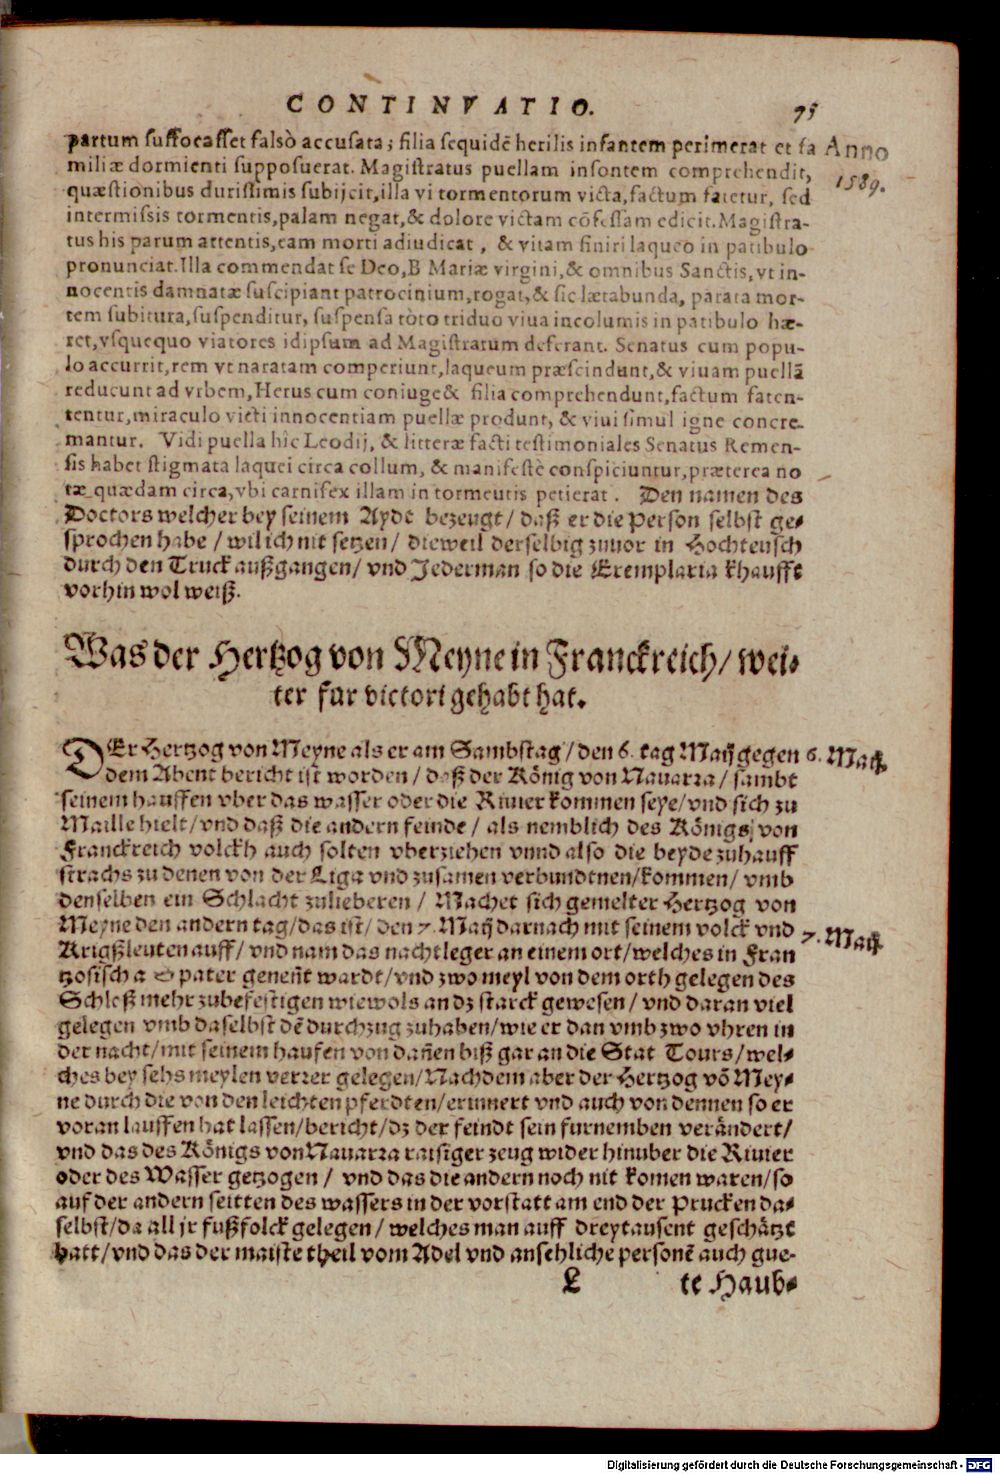 CONTINVATIO. 75
partum suffocasset falsò accusata; filia sequidē herilis infantem perimerat et fa Anno
miliæ dormienti supposuerat. Magistratus puellam insontem comprehendit, 1589.
quæstionibus durissimis subijcit, illa vi tormentorum victa, factum fatetur, sed
intermissis tormentis, palam negat, & dolore victam cōfessam edicit. Magistra-
tus his parum attentis, eam morti adiudicat, & vitam finiri laqueo in patibulo
pronunciat. Illa commendat se Deo, B Mariæ virgini, & omnibus Sanctis, vt in-
nocentis damnatæ suscipiant patrocinium, rogat, & sic lætabunda, parata mor-
tem subitura, suspenditur, suspensa tòto triduo viua incolumis in patibulo hæ-
ret, vsquequo viatores idipsum ad Magistratum deferant. Senatus cum popu-
lo accurrit, rem vt naratam comperiunt, laqueum præscindunt, & viuam puellā
reducunt ad vrbem, Herus cum coniuge & filia comprehendunt, factum faten-
tentur, miraculo victi innocentiam puellæ produnt, & viui simul igne concre-
mantur. Vidi puella hic Leodij, & litteræ facti testimoniales Senatus Remen-
sis habet stigmata laquei circa collum, & manifestè conspiciuntur, præterea no
tæ quædam circa, vbi carnifex illam in tormentis petierat. Den namen des
Doctors welcher bey seinem Aydt bezeugt / daß er die Person selbst ge-
sprochen habe / wil ich nit setzen / dieweil derselbig zuuor in Hochteusch
durch den Truck außgangen / vnd Jederman so die Exemplaria khaufft
vorhin wol weiß.
Was der Hertzog von Meyne in Franckreich / wei-
ter fur victori gehabt hat.
DEr Hertzog von Meyne als er am Sambstag / den 6. tag Maij gegen 6. Maij.
dem Abent bericht ist worden / daß der König von Nauarra / sambt
seinem hauffen vber das wasser oder die Riuier kommen seye / vnd sich zu
Maille hielt / vnd daß die andern feinde / als nemblich des Königs von
Franckreich volckh auch solten vberziehen vnnd also die beyde zuhauff
strachs zu denen von der Liga vnd zusamen verbundtnen / kommen / vmb
denselben ein Schlacht zulieberen / Machet sich gemelter Hertzog von
Meyne den andern tag / das ist / den 7. Maij darnach mit seinem volck vnd 7. Maij.
Krigßleuten auff / vnd nam das nachtleger an einem ort / welches in Fran
tzosisch a Spater geneñt wardt / vnd zwo meyl von dem orth gelegen des
Schloß mehr zubefestigen wiewols an dz starck gewesen / vnd daran viel
gelegen vmb daselbst dē durchzug zuhaben / wie er dan vmb zwo vhren in
der nacht / mit seinem haufen von dañen biß gar an die Stat Tours / wel-
ches bey sehs meylen verrer gelegen / Nachdem aber der Hertzog vō Mey-
ne durch die von den leichten pferdten / erinnert vnd auch von dennen so er
voran lauffen hat lassen / bericht / dz der feindt sein furnemben verändert /
vnd das des Königs von Nauarra raisiger zeug wider hinuber die Riuier
oder des Wasser getzogen / vnd das die andern noch nit komen waren / so
auf der andern seitten des wassers in der vorstatt am end der Prucken da-
selbst / da all jr fußfolck gelegen / welches man auff dreytausent geschätzt
hatt / vnd das der maiste theil vom Adel vnd ansehliche personē auch gue-
L te Haub-
Digitalisierung gefördert durch die Deutsche Forschungsgemeinschaft - DFG